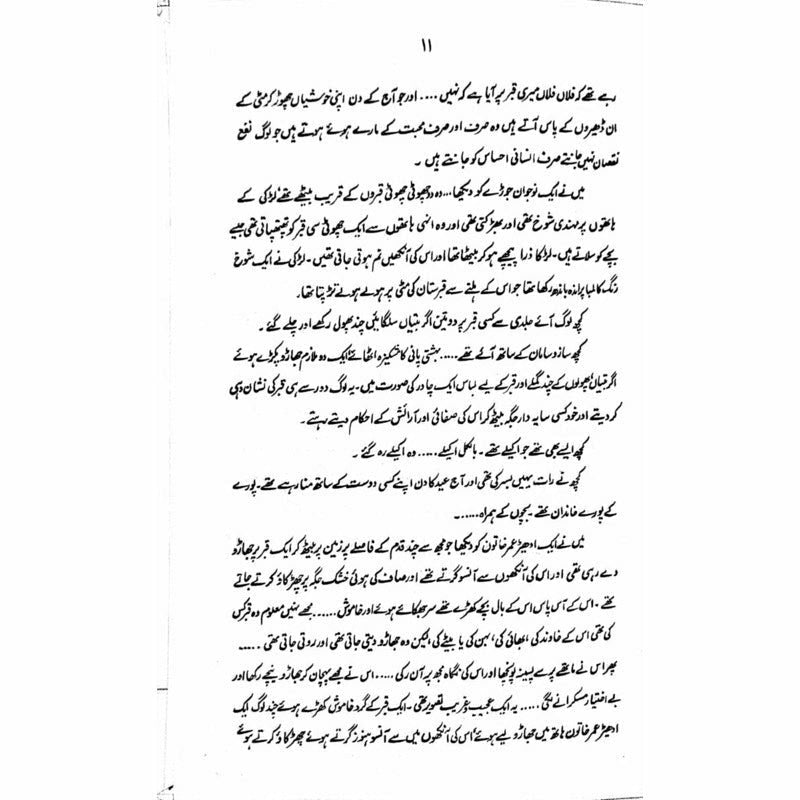 ۱۱
رہے تھے کہ فلاں فلاں میری قبر پر آیا ہے کہ نہیں .... اور جو آج کے دن اپنی خوشیاں چھوڑ کر مٹی کے
ان ڈھیروں کے پاس آتے ہیں وہ صرف اور صرف محبت کے مارے ہوئے ہوتے ہیں جو لوگ نفع
نقصان نہیں جانتے صرف انسانی احساس کو جانتے ہیں ۔
میں نے ایک نوجوان جوڑے کو دیکھا... وہ دو چھوٹی چھوٹی قبروں کے قریب بیٹھے تھے لڑکی کے
ہاتھوں پر مہندی شوخ تھی اور بھڑکتی تھی اور وہ انہی ہاتھوں سے ایک چھوٹی سی قبر کو تھپتھپاتی تھی جیسے
بچے کو سلاتے ہیں۔ لڑکا ذرا پیچھے ہو کر بیٹھا تھا اور اس کی آنکھیں نم ہوتی جاتی تھیں۔ لڑکی نے ایک شوخ
رنگ کا لمبا پراندہ باندھ رکھا تھا جو اس کے ہلنے سے قبرستان کی مٹی پر ہولے ہولے تڑپتا تھا۔
کچھ لوگ آئے جلدی سے کسی قبر پر دو تین اگر بتیاں سلگائیں چند پھول رکھے اور چلے گئے ۔
کچھ ساز و سامان کے ساتھ آئے تھے ..... بہشتی پانی کا مشکیزہ اٹھائے ایک دو ملازم جھاڑو پکڑے ہوئے
اگر بتیاں پھولوں کے چند گملے اور قبر کے لیے لباس ایک چادر کی صورت میں۔ یہ لوگ دور سے ہی قبر کی نشان دہی
کر دیتے اور خود کسی سایہ دار جگہ بیٹھ کر اس کی صفائی اور آرائش کے احکام دیتے رہتے۔
کچھ ایسے بھی تھے جو اکیلے تھے ۔ بالکل اکیلے ..... وہ اکیلے رہ گئے ۔
کچھ نے رات یہیں بسر کی تھی اور آج عید کا دن اپنے کسی دوست کے ساتھ منا رہے تھے۔ پورے
کے پورے خاندان تھے بچوں کے ہمراہ ......۔
میں نے ایک ادھیڑ عمر خاتون کو دیکھا جو مجھ سے چند قدم کے فاصلے پر زمین پر بیٹھ کر ایک قبر پر جھاڑو
دے رہی تھی اور اس کی آنکھوں سے آنسو گرتے تھے اور صاف کی ہوئی خشک جگہ پر چھڑکاؤ کرتے جاتے
تھے ۔ اس کے آس پاس اس کے بال بچے کھڑے تھے سر جھکائے ہوئے اور خاموش ...... مجھے نہیں معلوم وہ قبر کس
کی تھی اس کے خاوند کی، بھائی کی، بہن کی یا بیٹے کی لیکن وہ جھاڑو دیتی جاتی تھی اور روتی جاتی تھی .....
پھر اس نے ماتھے پر سے پسینہ پونچھا اور اس کی نگاہ مجھ پر آن رکی ..... اس نے مجھے پہچان کر جھاڑو نیچے رکھا اور
بے اختیار مسکرانے لگی ..... یہ ایک عجیب و غریب تصویر تھی ۔ ایک قبر کے گرد خاموش کھڑے ہوئے چند لوگ ایک
ادھیڑ عمر خاتون ہاتھ میں جھاڑو لیے ہوئے اس کی آنکھوں میں سے آنسو ہنوز گرتے ہوئے چھڑکاؤ کرتے ہوئے